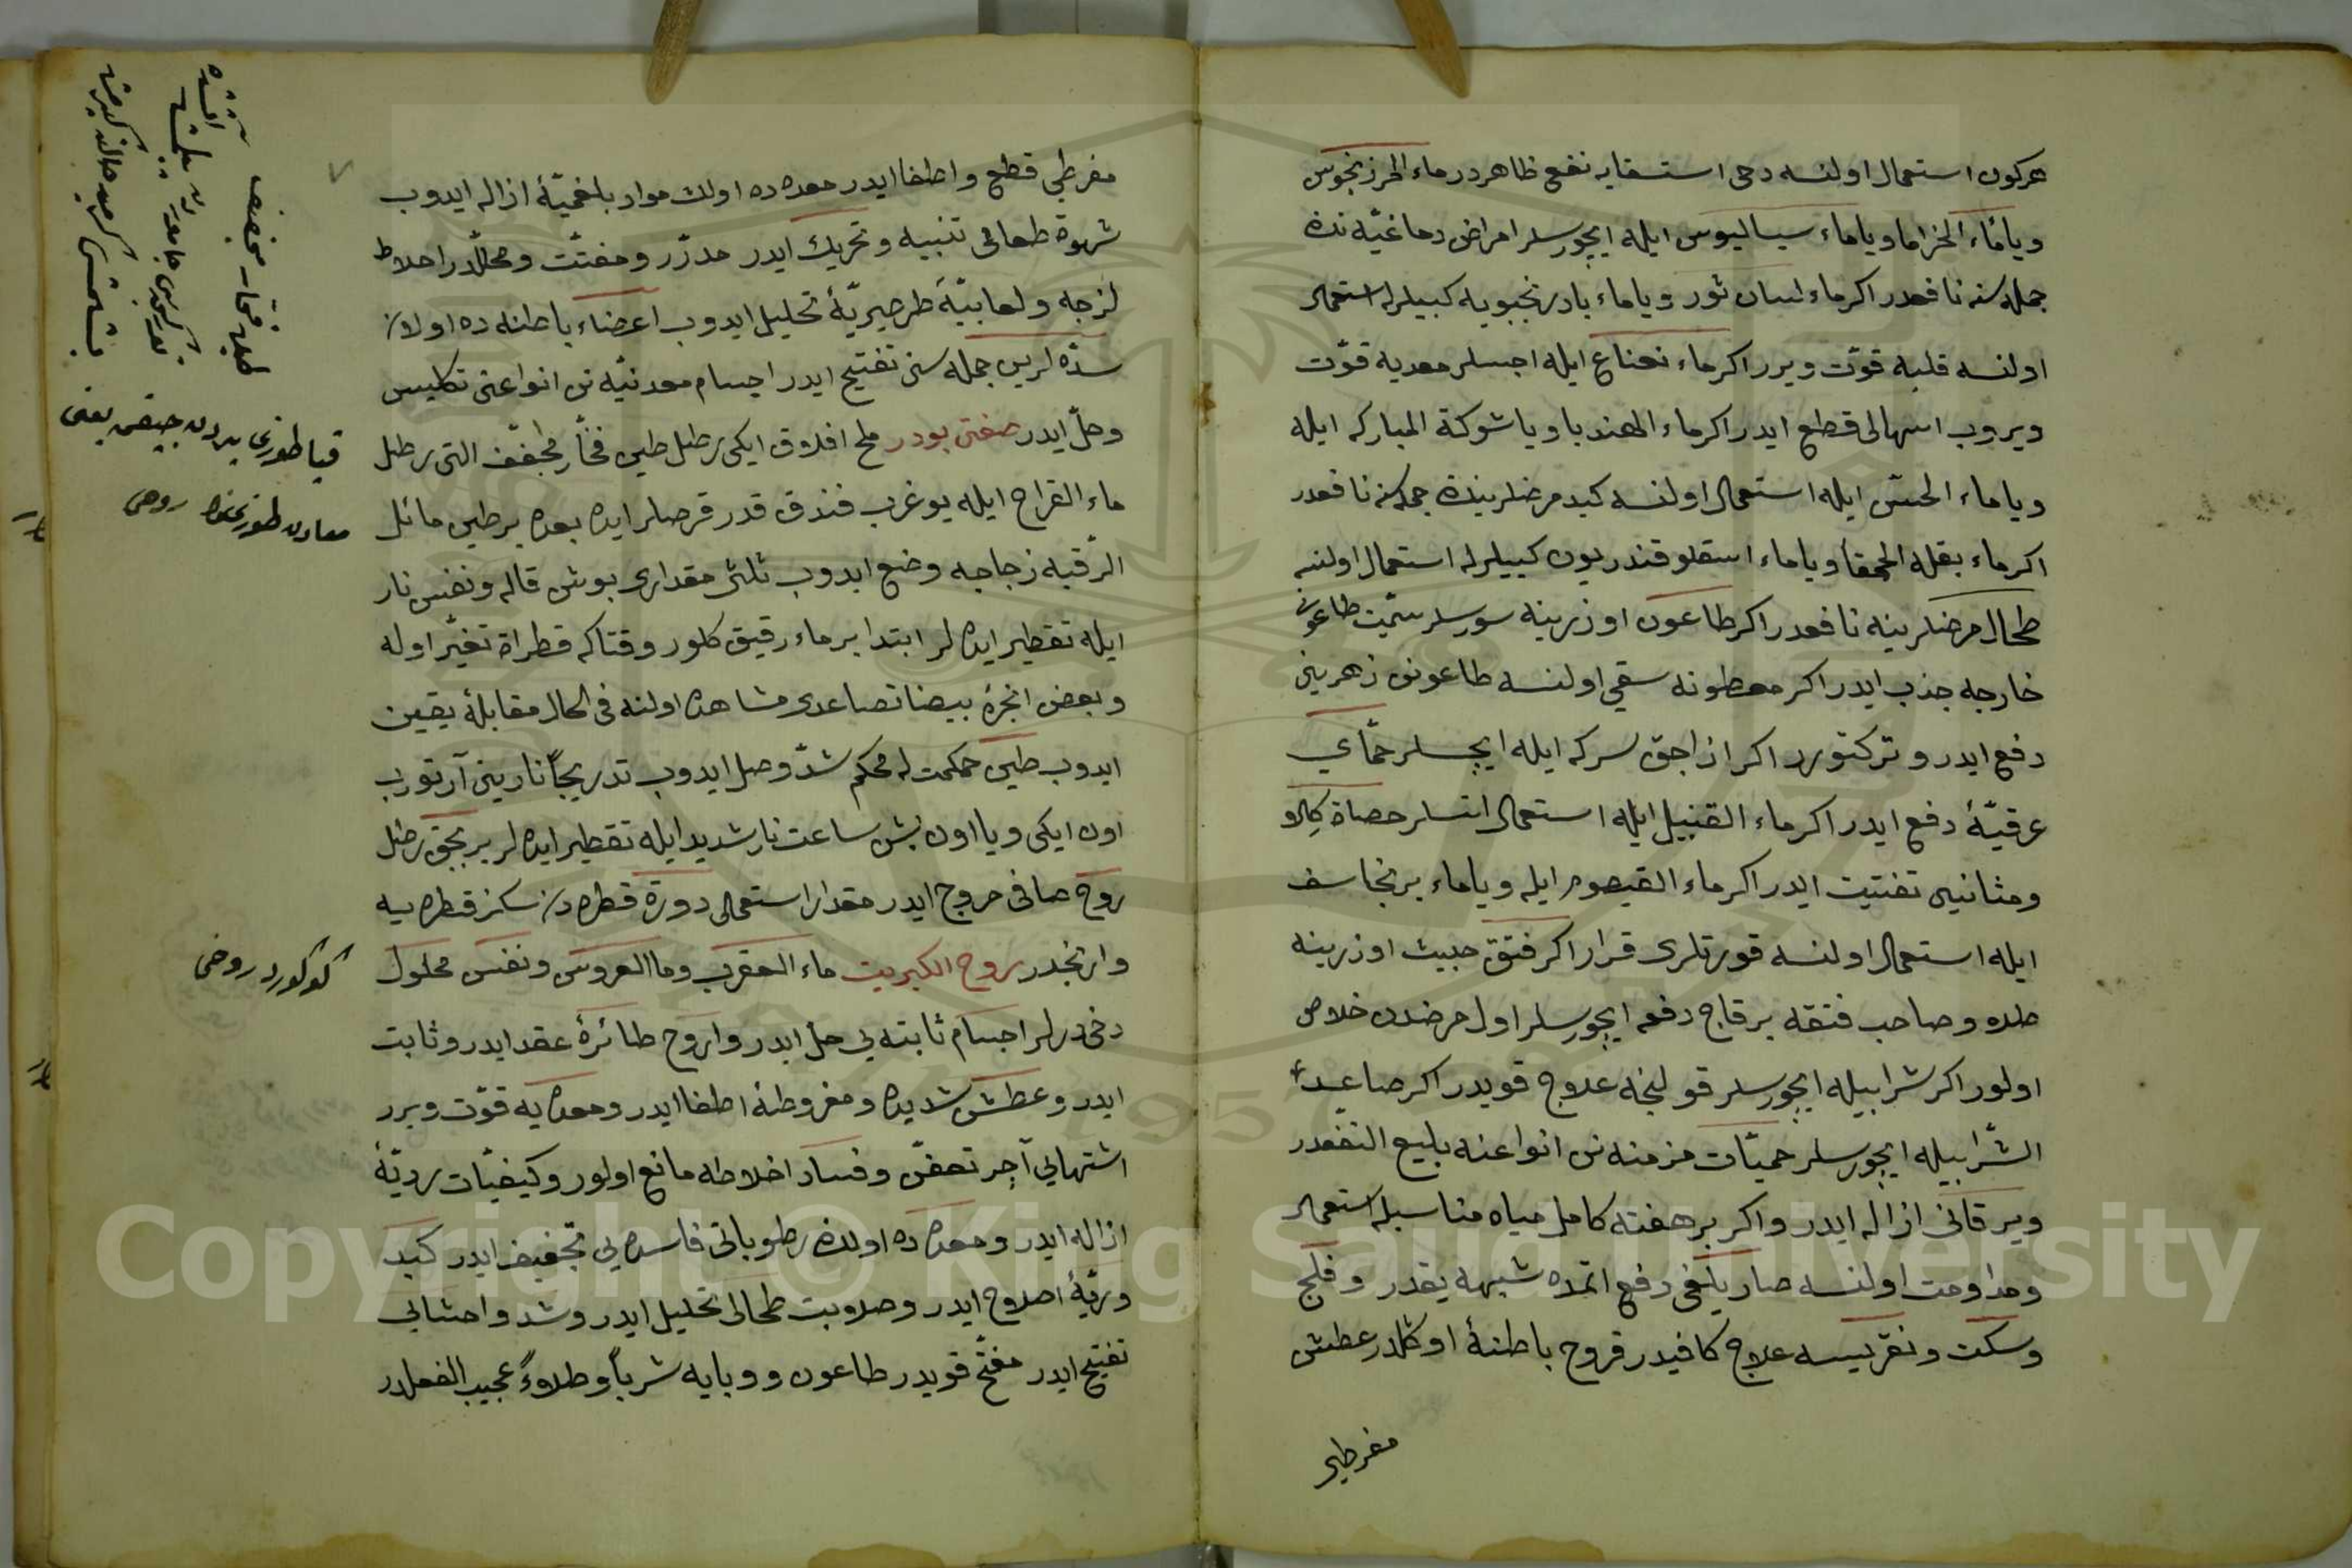 هركون استعمال اولنسه دخی استسقایه نفع ظاهردر ماء المرزنجوس
ویا ماء الخزاما ویا ماء سیسالیوس ایله ایچورسلر امراض دماغیّه نك
جمله سنه نافعدر اكر ماء لسان ثور ویا ماء بادرنجبویه كبیلرله استعمال
اولنسه قلبه قوّت ویرر اكر ماء نعناع ایله ایچسلر معدیه قوّت
ویروب اسهالی قطع ایدر اكر ماء الهندبا ویا شوكة المباركه ایله
ویا ماء الخسّ ایله استعمال اولنسه كبد مرضلرینك جمله سنه نافعدر
اكر ماء بقلة الحمقا ویا ماء اسقلوقندریون كبیلرله استعمال اولنسه
طحال مرضلرینه نافعدر اكر طاعون اوزرینه سورسلر سمّیت طاعونی
خارجه جذب ایدر اكر مطعونه سقی اولنسه طاعونن زهرینی
دفع ایدر وتركتورر اكر ازاجق سركه ایله ایچسلر حمّای
عرقیّهٔ دفع ایدر اكر ماء القنبیل ایله استعمال اتسلر حصاة كلاو
ومثانیی تفتیت ایدر اكر ماء القیصوم ایله ویا ماء برنجاسف
ایله استعمال اولنسه قورتلری قرار اكر فتق خبیث اوزرینه
طلاء وصاحب فتقه برقاج دفعه ایچورسلر اول مرضدن خلاص
اولور اكر شرابیله ایچورسلر قولنجه علاج قویدر اكر صاعد
الشّرابیله ایچورسلر حمیّات مزمنه نن انواعنه بلیغ النفعدر
ویرقانی ازاله ایدر واكر بر هفته كامل میاه مناسبله استعمال
ومداومت اولنسه صاریلغی دفع اتمده شبهه یقدر وفلج
وسكت ونقریسه علاج كافیدر قروح باطنهٔ اوكلدر عطش
مفرطی
مفرطی قطع واطفا ایدر معده ده اولان مواد بلغمیّهٔ ازاله ایدوب
شهوة طعامی تنبیه وتحریك ایدر مدرّر ومفتّت ومحلّلدر اخلاط
لزجه ولعابیّهٔ طرطیریّهٔ تحلیل ایدوب اعضاء باطنه ده اولان
سدّه لرین جمله سنی تفتیح ایدر اجسام معدنیّه نن انواعنی تكلیس
وحلّ ایدر صفتی بودر ملح افلاق ایكی رطل طین فخّار مجفّف التی رطل
ماء القراح ایله یوغرب فندق قدر قرصلر ایده بعده بر طین مائل
الرّقبه زجاجه وضع ایدوب ثلثی مقداری بوش قاله ونفس نار
ایله تقطیر ایده لر ابتدا بر ماء رقیق كلور وقتاكه قطراة تغیّر اوله
وبعض ابخرهٔ بیضا تصاعدی مشاهده اولنه فی الحال مقابلهٔ یقین
ایدوب طین حكمت له محكم شدّ ووصل ایدوب تدریجاً نارینی آرتورب
اون ایكی ویا اون بش ساعت نار شدید ایله تقطیر ایده لر بر بچق رطل
روح صافی خروج ایدر مقدار استعمالی دورة قطره دن سكز قطره یه
وارنجدر روح الكبریت ماء العقرب وما العروس ونفس محلول
دخی درلر اجسام ثابته یی حلّ ایدر وارواح طائرهٔ عقد ایدر وثابت
ایدر وعطش شدیده ومفروطهٔ اطفا ایدر ومعده یه قوّت ویرر
اشتهالی آچر تعفّن وفساد اخلاطه مانع اولور وكیفیّات ردیّهٔ
ازاله ایدر ومعده ده اولان رطوباتی فاسده یی تجفیف ایدر كبد
وریّهٔ اصلاح ایدر وصلابت طحالی تحلیل ایدر وشد واحشایی
تفتیح ایدر مفتّح قویدر طاعون ووبایه شرباً وطلاءً عجیب الفعلدر
قیا طوزی یردن چیقن یعنی
معادن طوزینك روحی
كوكورد روحی